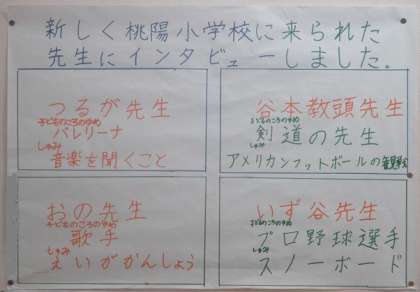 新しく桃陽小学校に来られた
先生にインタビューしました。
つるが先生
子どものころのゆめ
バレリーナ
しゅみ
音楽を聞くこと
谷本教頭先生
子どものころのゆめ
剣道の先生
しゅみ
アメリカンフットボールの
おの先生
子どものころのゆめ
歌手
しゅみ
えいがかんしょう
いず谷先生
子どものころのゆめ
プロ野球選手
しゅみ
スノーボード